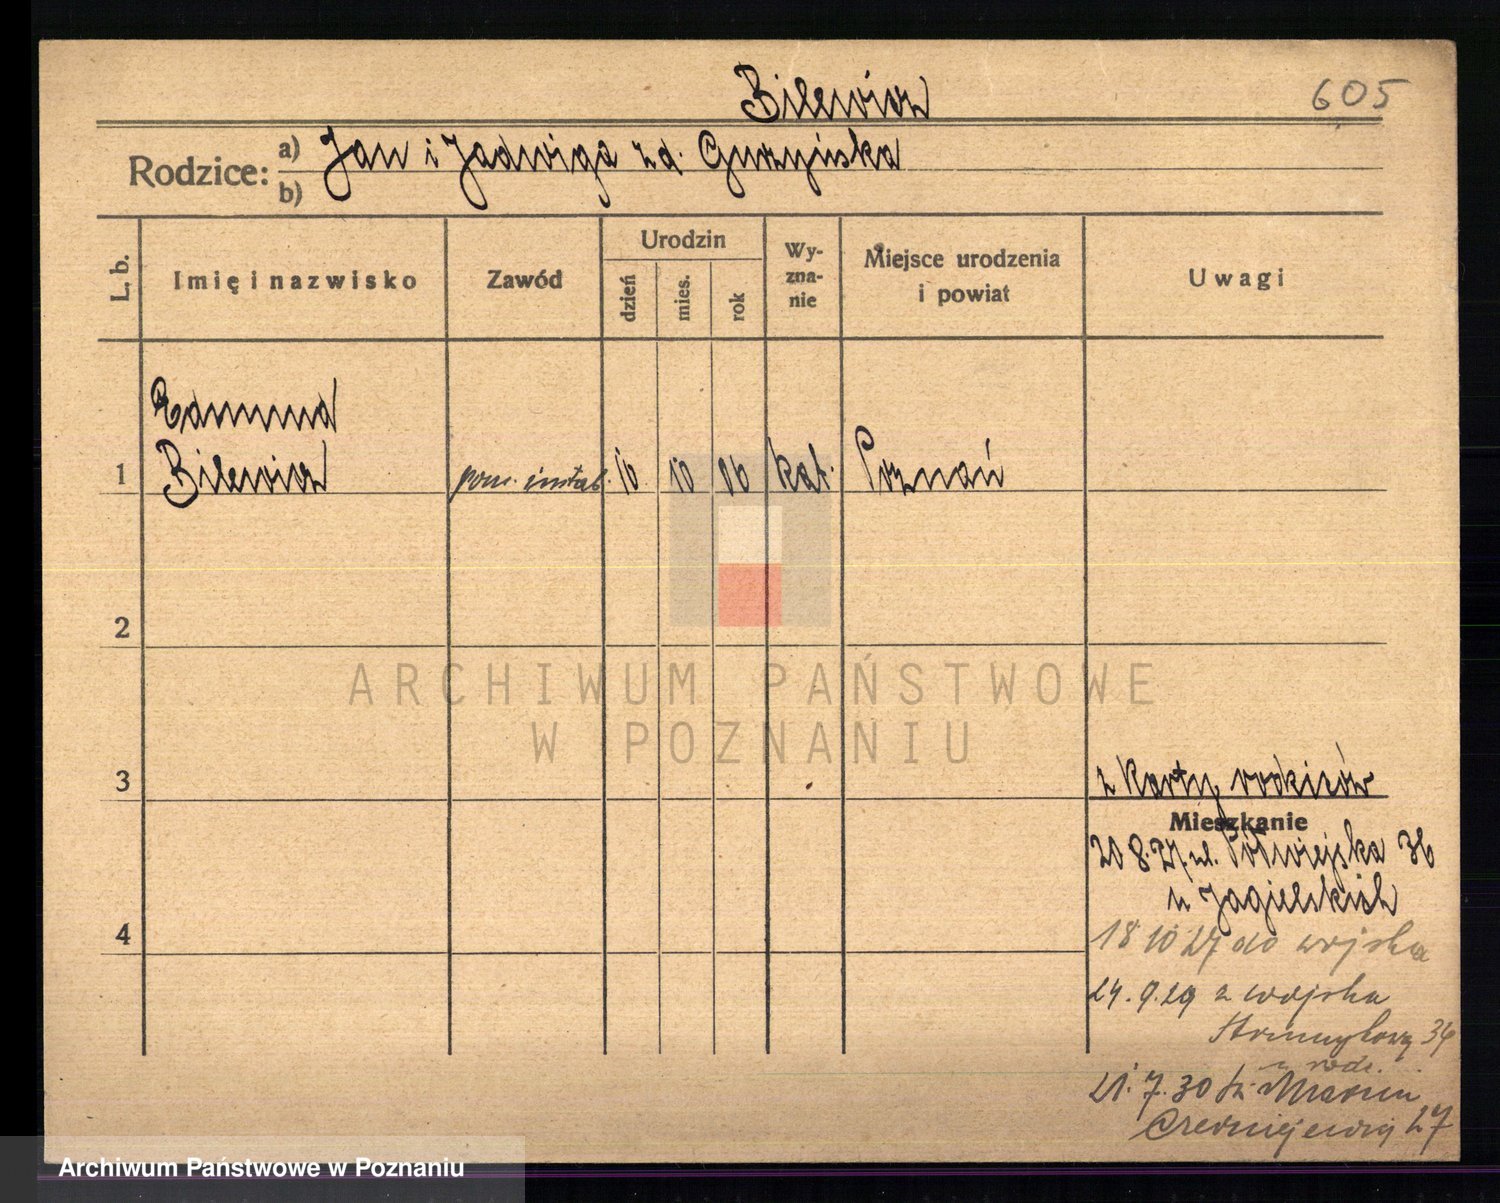 Bilewicz
605
Rodzice:
a) Jan i Jadwiga z d. Guzyńska
b)
L. b.
Imię i nazwisko
Zawód
Urodzin
dzień
mies.
rok
Wy-
zna-
nie
Miejsce urodzenia
i powiat
Uwagi
Edmund
1 Bilewicz pom. instal. 10 10 06 kat. Poznań
2
3
4
z karty rodziców
Mieszkanie
20 8. 27. ul. Półwiejska 36
u Jagielskich
18 10 27 do wojska
24. 9. 29 z wojska
34
u rodz.
21. 7. 30
27
ARCHIWUM PAŃSTWOWE
W POZNANIU
Archiwum Państwowe w Poznaniu